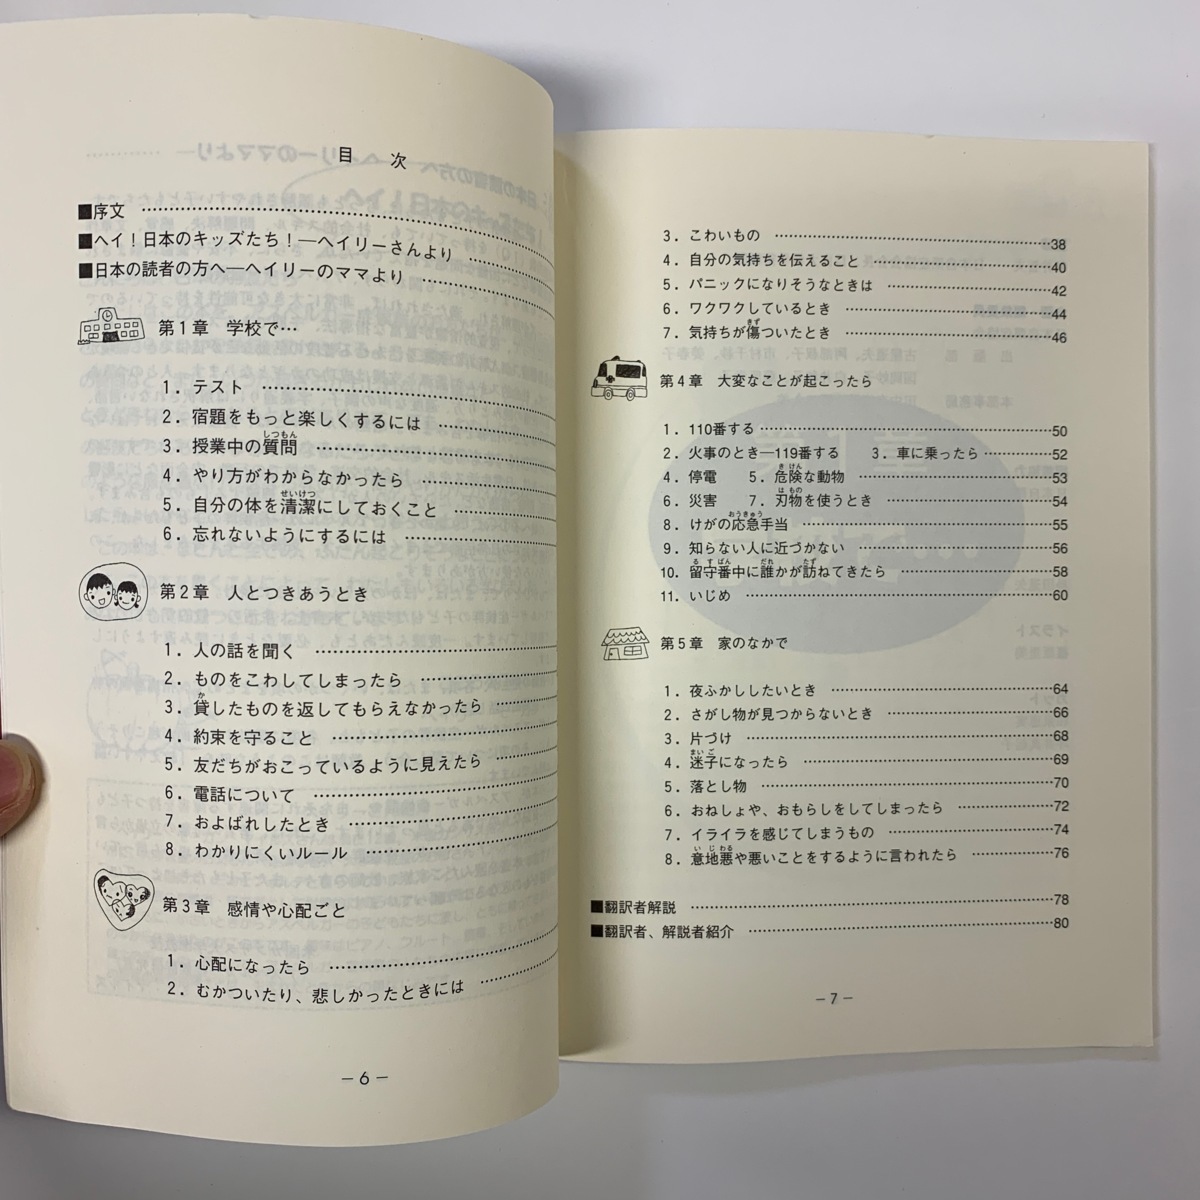 目　次
■序文 ………………………
■ヘイ！日本のキッズたち！―ヘイリーさんより …………
■日本の読者の方へ―ヘイリーのママより …………
第1章　学校で…
1．テスト ………………………
2．宿題をもっと楽しくするには …………
3．授業中の質問（しつもん） ………………………
4．やり方がわからなかったら …………
5．自分の体を清潔（せいけつ）にしておくこと …………
6．忘れないようにするには …………
第2章　人とつきあうとき
1．人の話を聞く ………………………
2．ものをこわしてしまったら …………
3．貸（か）したものを返してもらえなかったら …………
4．約束を守ること ………………………
5．友だちがおこっているように見えたら …………
6．電話について ………………………
7．およばれしたとき ………………………
8．わかりにくいルール ………………………
第3章　感情や心配ごと
1．心配になったら ………………………
2．むかついたり、悲しかったときには …………
－6－
3．こわいもの ………………………38
4．自分の気持ちを伝えること ………………………40
5．パニックになりそうなときは ………………………42
6．ワクワクしているとき ………………………44
7．気持ちが傷（きず）ついたとき ………………………46
第4章　大変なことが起こったら
1．110番する ………………………50
2．火事のとき―119番する　3．車に乗ったら …………52
4．停電　5．危険（きけん）な動物 ………………………53
6．災害　7．刃物（はもの）を使うとき ………………………54
8．けがの応急（おうきゅう）手当 ………………………55
9．知らない人に近づかない ………………………56
10．留守番（るすばん）中に誰（だれ）かが訪（たず）ねてきたら ………………………58
11．いじめ ………………………60
第5章　家のなかで
1．夜ふかししたいとき ………………………64
2．さがし物が見つからないとき ………………………66
3．片づけ ………………………68
4．迷子（まいご）になったら ………………………69
5．落とし物 ………………………70
6．おねしょや、おもらしをしてしまったら …………72
7．イライラを感じてしまうもの ………………………74
8．意地悪（いじわる）や悪いことをするように言われたら …………76
■翻訳者解説 ………………………78
■翻訳者、解説者紹介 ………………………80
－7－